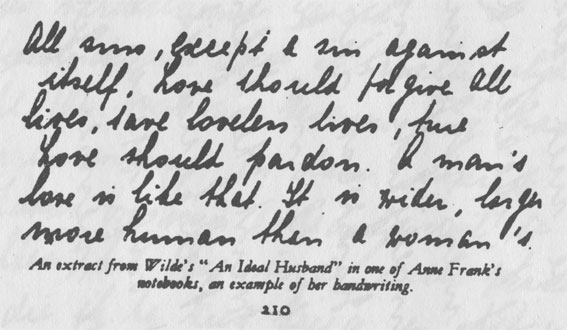 All sins, except a sin against
itself, Love should forgive All
lives, save loveless lives, true
Love should pardon. A man's
love is like that. It is wider, larger
more human than a woman's.
An extract from Wilde's "An Ideal Husband" in one of Anne Frank's
notebooks, an example of her handwriting.
210